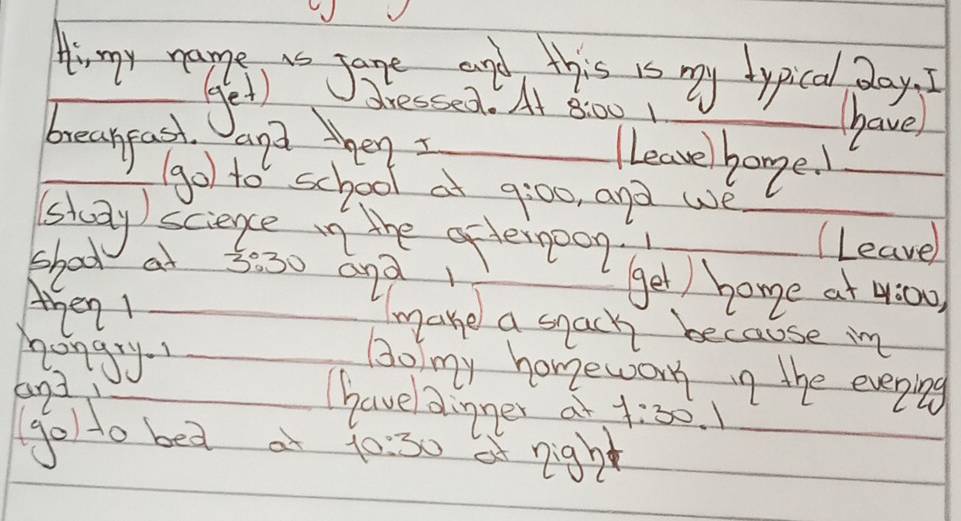 Hi, my name is Jane and this is my typical Day. I
________ (get) dressed. At 8:00 I ________ (have)
breakfast. and then I ________ (Leave) home. I ________
________ (go) to school at 9:00, and we ________
(study) science in the afternoon. I ________ (Leave)
shool at 3:30 and I ________ (get) home at 4:00,
then I ________ (make) a snack because im
hongry. I ________ (do) my homework in the evening
and I ________ (have) dinner at 7:30. I ________
(go) to bed at 10:30 at night